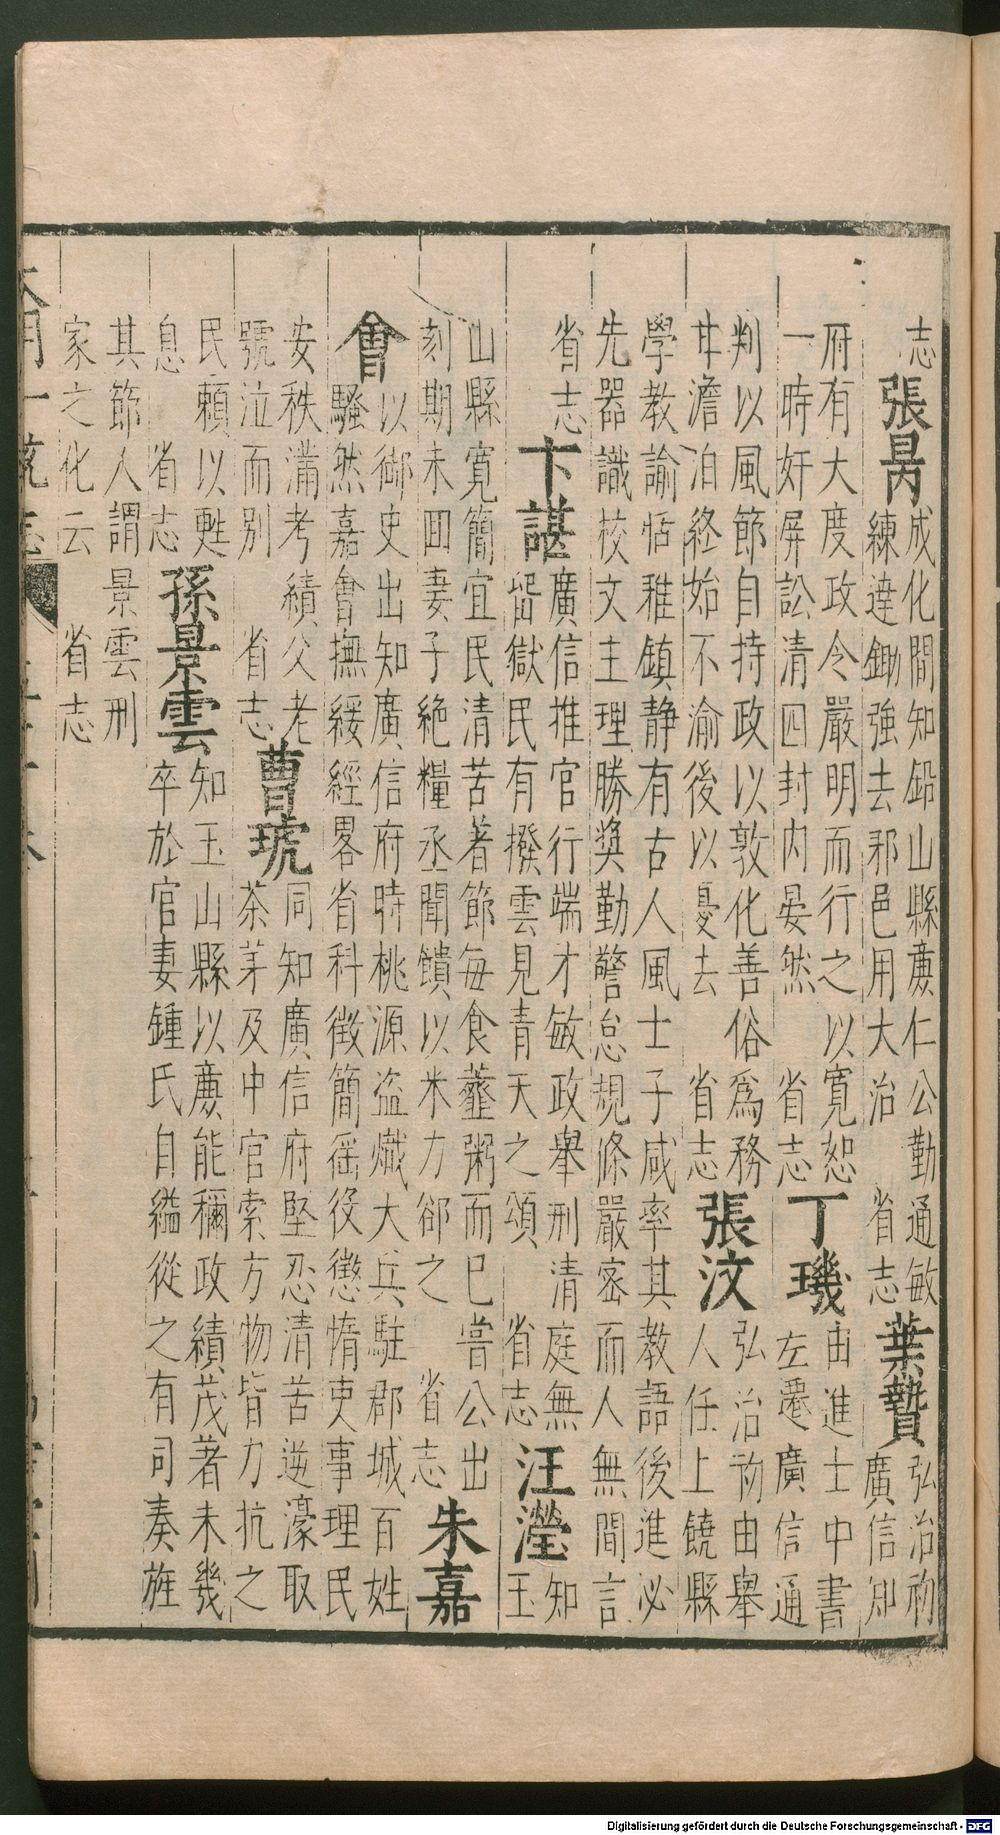 志
張昺
成化間知鉛山縣廉仁公勤通敏
練達鋤強去邪邑用大治 省志
葉贄
弘治初
廣信知
府有大度政令嚴明而行之以寛恕
一時奸屏訟清四封内晏然 省志
丁璣
由進士中書
左遷廣信通
判以風節自持政以敦化善俗爲務
甘澹泊終始不渝後以憂去 省志
張汶
弘治初由舉
人任上饒縣
學教諭恬雅鎮静有古人風士子咸率其教語後進必
先器識校文主理勝奬勤警怠規條嚴密而人無間言
省志
卞諶
廣信推官行端才敏政舉刑清庭無
留獄民有撥雲見青天之頌 省志
汪瀅
知
玉
山縣寛簡宜民清苦著節每食虀粥而已嘗公出
刻期未囬妻子絶糧丞聞饋以米力郤之 省志
朱嘉
會
以御史出知廣信府時桃源盗熾大兵駐郡城百姓
騷然嘉會撫綏經畧省科徵簡徭役懲惰吏事理民
安秩滿考績父老
號泣而别 省志
曹琥
同知廣信府堅忍清苦逆濠取
茶芽及中官索方物皆力抗之
民賴以甦
息 省志
孫景雲
知玉山縣以廉能稱政績茂著未幾
卒於官妻鍾氏自縊從之有司奏旌
其節人謂景雲刑
家之化云 省志
大明一統志
Digitalisierung gefördert durch die Deutsche Forschungsgemeinschaft - DFG